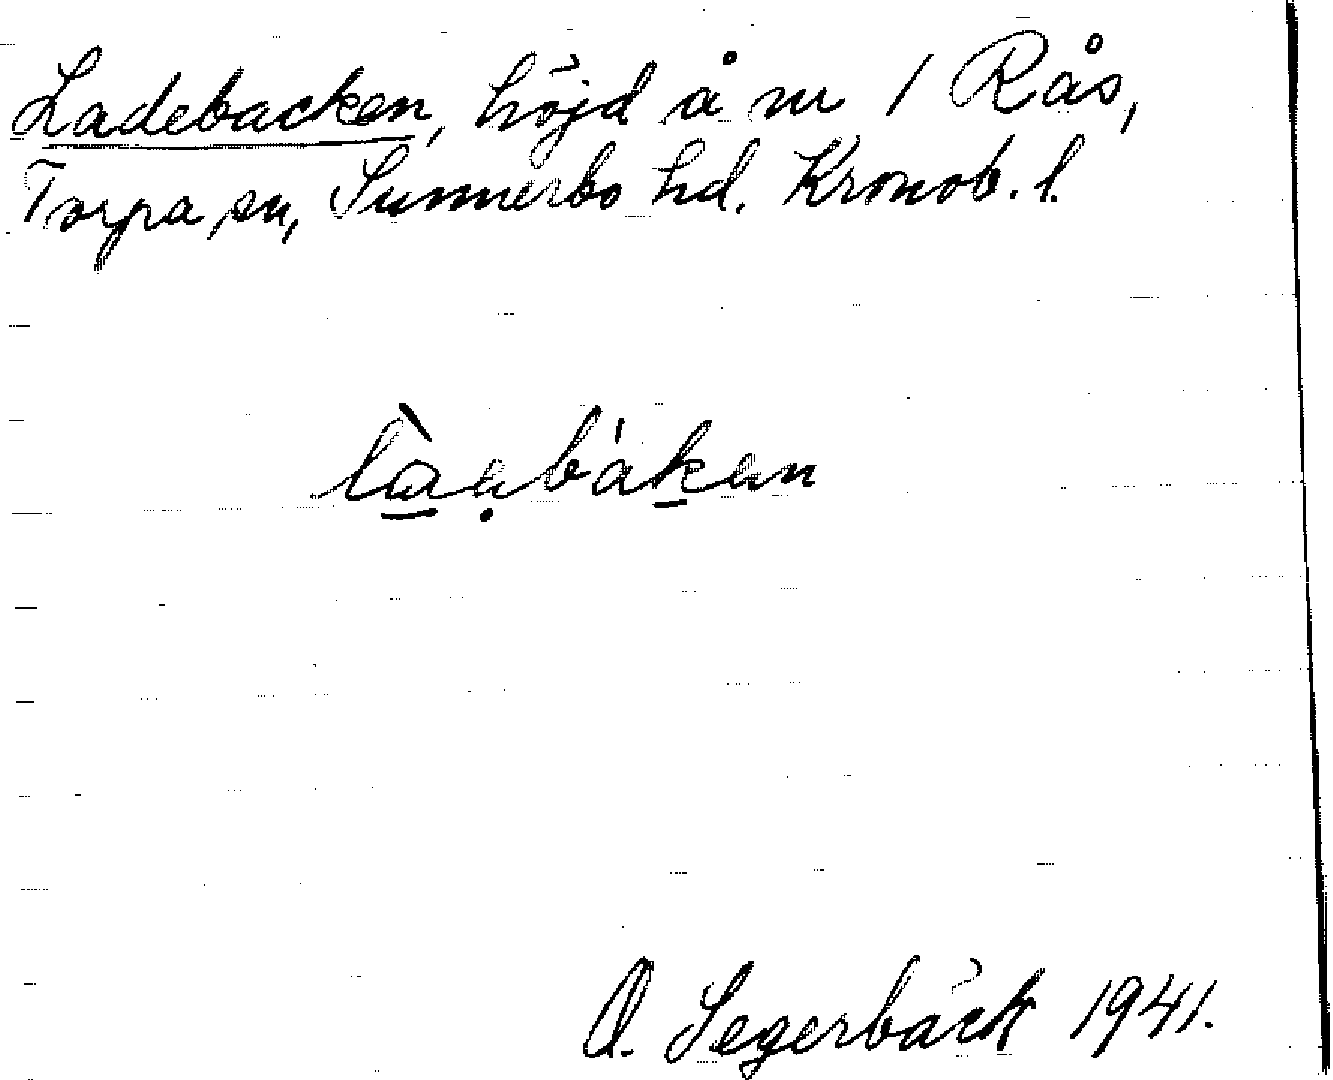 Ladebacken, höjd å nr 1 Rås,
Torpa sn, Sunnerbo hd. Kronob. l.
O. Segerbäck 1941.